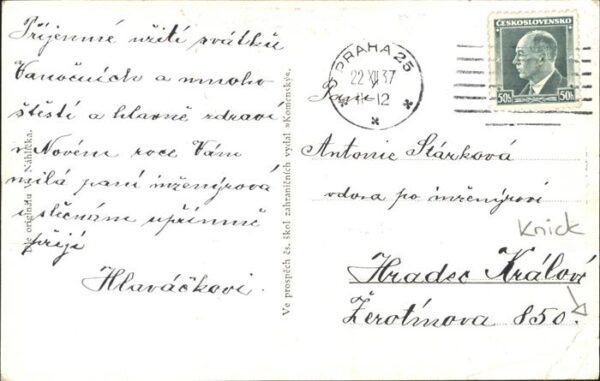 Příjemné užití svátků
Vánočních a mnoho
štěstí a hlavně zdraví
v Novém roce Vám
milá paní inženýrová
i slečnám upřímně
přejí
Hlaváčkovi.
Dle originálu V. Náhlíka.
Ve prospěch čs. škol zahraničních vydal »Komenský«.
PRAHA 25
22 XII 37
12
ČESKOSLOVENSKO
50h
50h
Paní
Antonie Stárková
vdova po inženýrovi
Knick
Hradec Králové
Žerotínova 850.